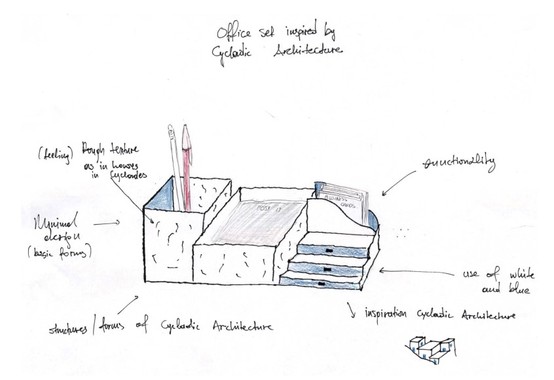 Office set inspired by
Cycladic Architecture
(feeling) Rough texture
as in houses
in Cyclades
functionality
POST IT
Minimal
design
(basic forms)
use of white
and blue
structures/forms of Cycladic Architecture
inspiration Cycladic Architecture